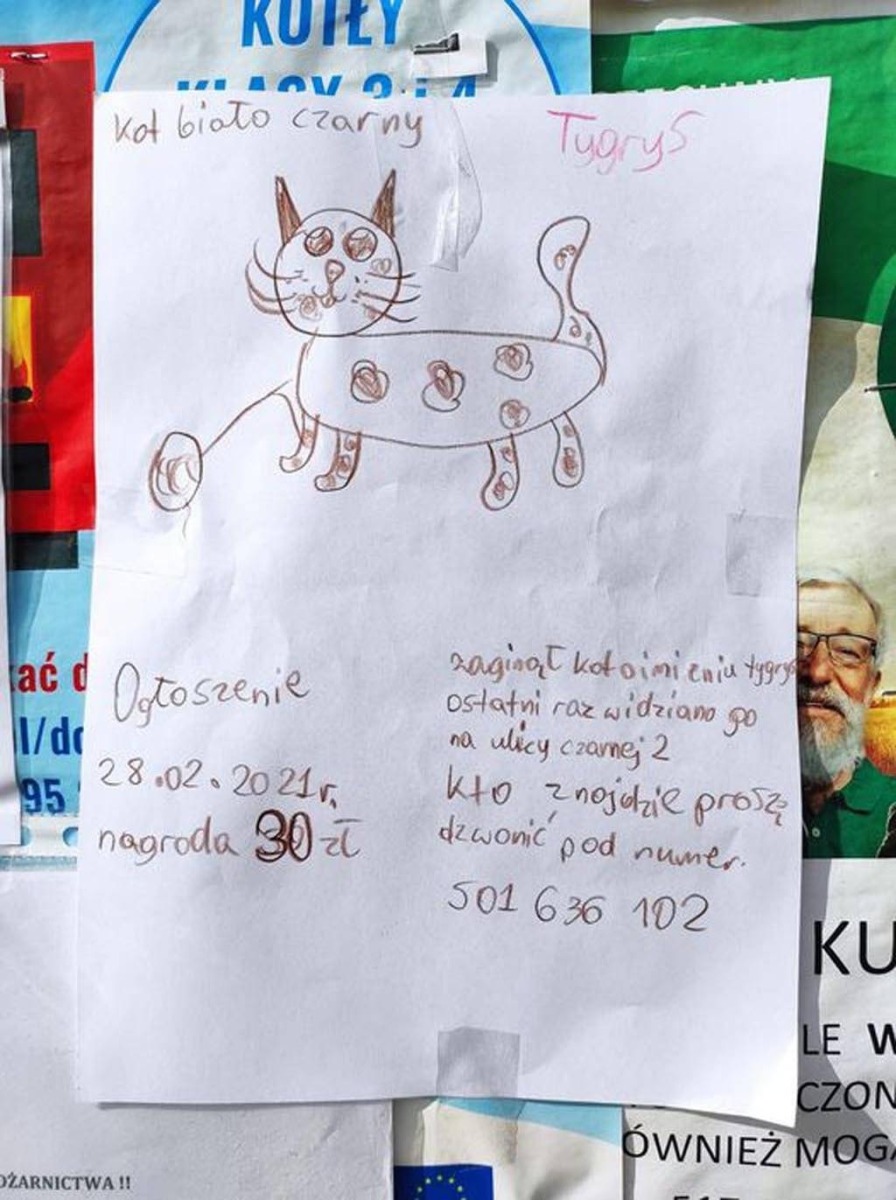 KUTŁY
KLASY 3 i 4
kot biało czarny
TygryS
Ogłoszenie
28.02.2021r.
nagroda 30 zł
zaginął kot o imieniu tygrys
ostatni raz widziano go
na ulicy czarnej 2
kto znajdzie proszę
dzwonić pod numer.
501 636 102
kać d
l/do
95
KU
LE W
CZON
ÓWNIEŻ MOGĄ
OŻARNICTWA !!